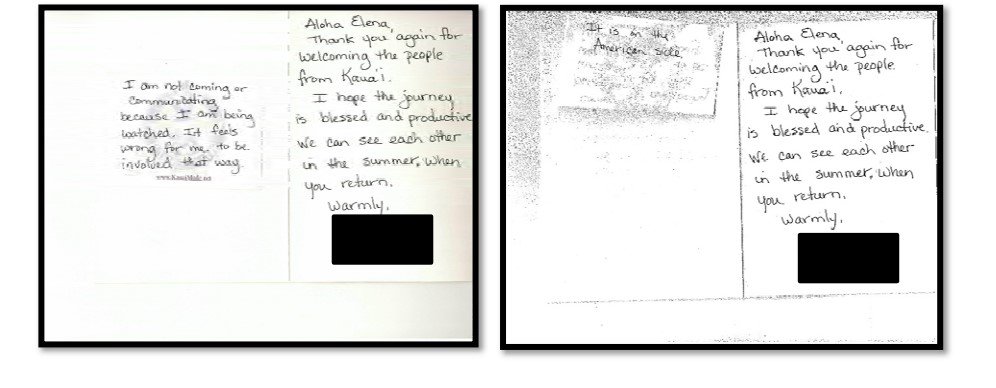 I am not coming or
communicating
because I am being
watched. It feels
wrong for me to be
involved that way.
www.KauaiMade.net
Aloha Elena,
Thank you again for
welcoming the people
from Kaua'i.
I hope the journey
is blessed and productive
We can see each other
in the summer, when
you return.
Warmly,
It is on the
American side
Aloha Elena,
Thank you again for
welcoming the people
from Kaua'i.
I hope the journey
is blessed and productive.
We can see each other
in the summer, when
you return.
Warmly,